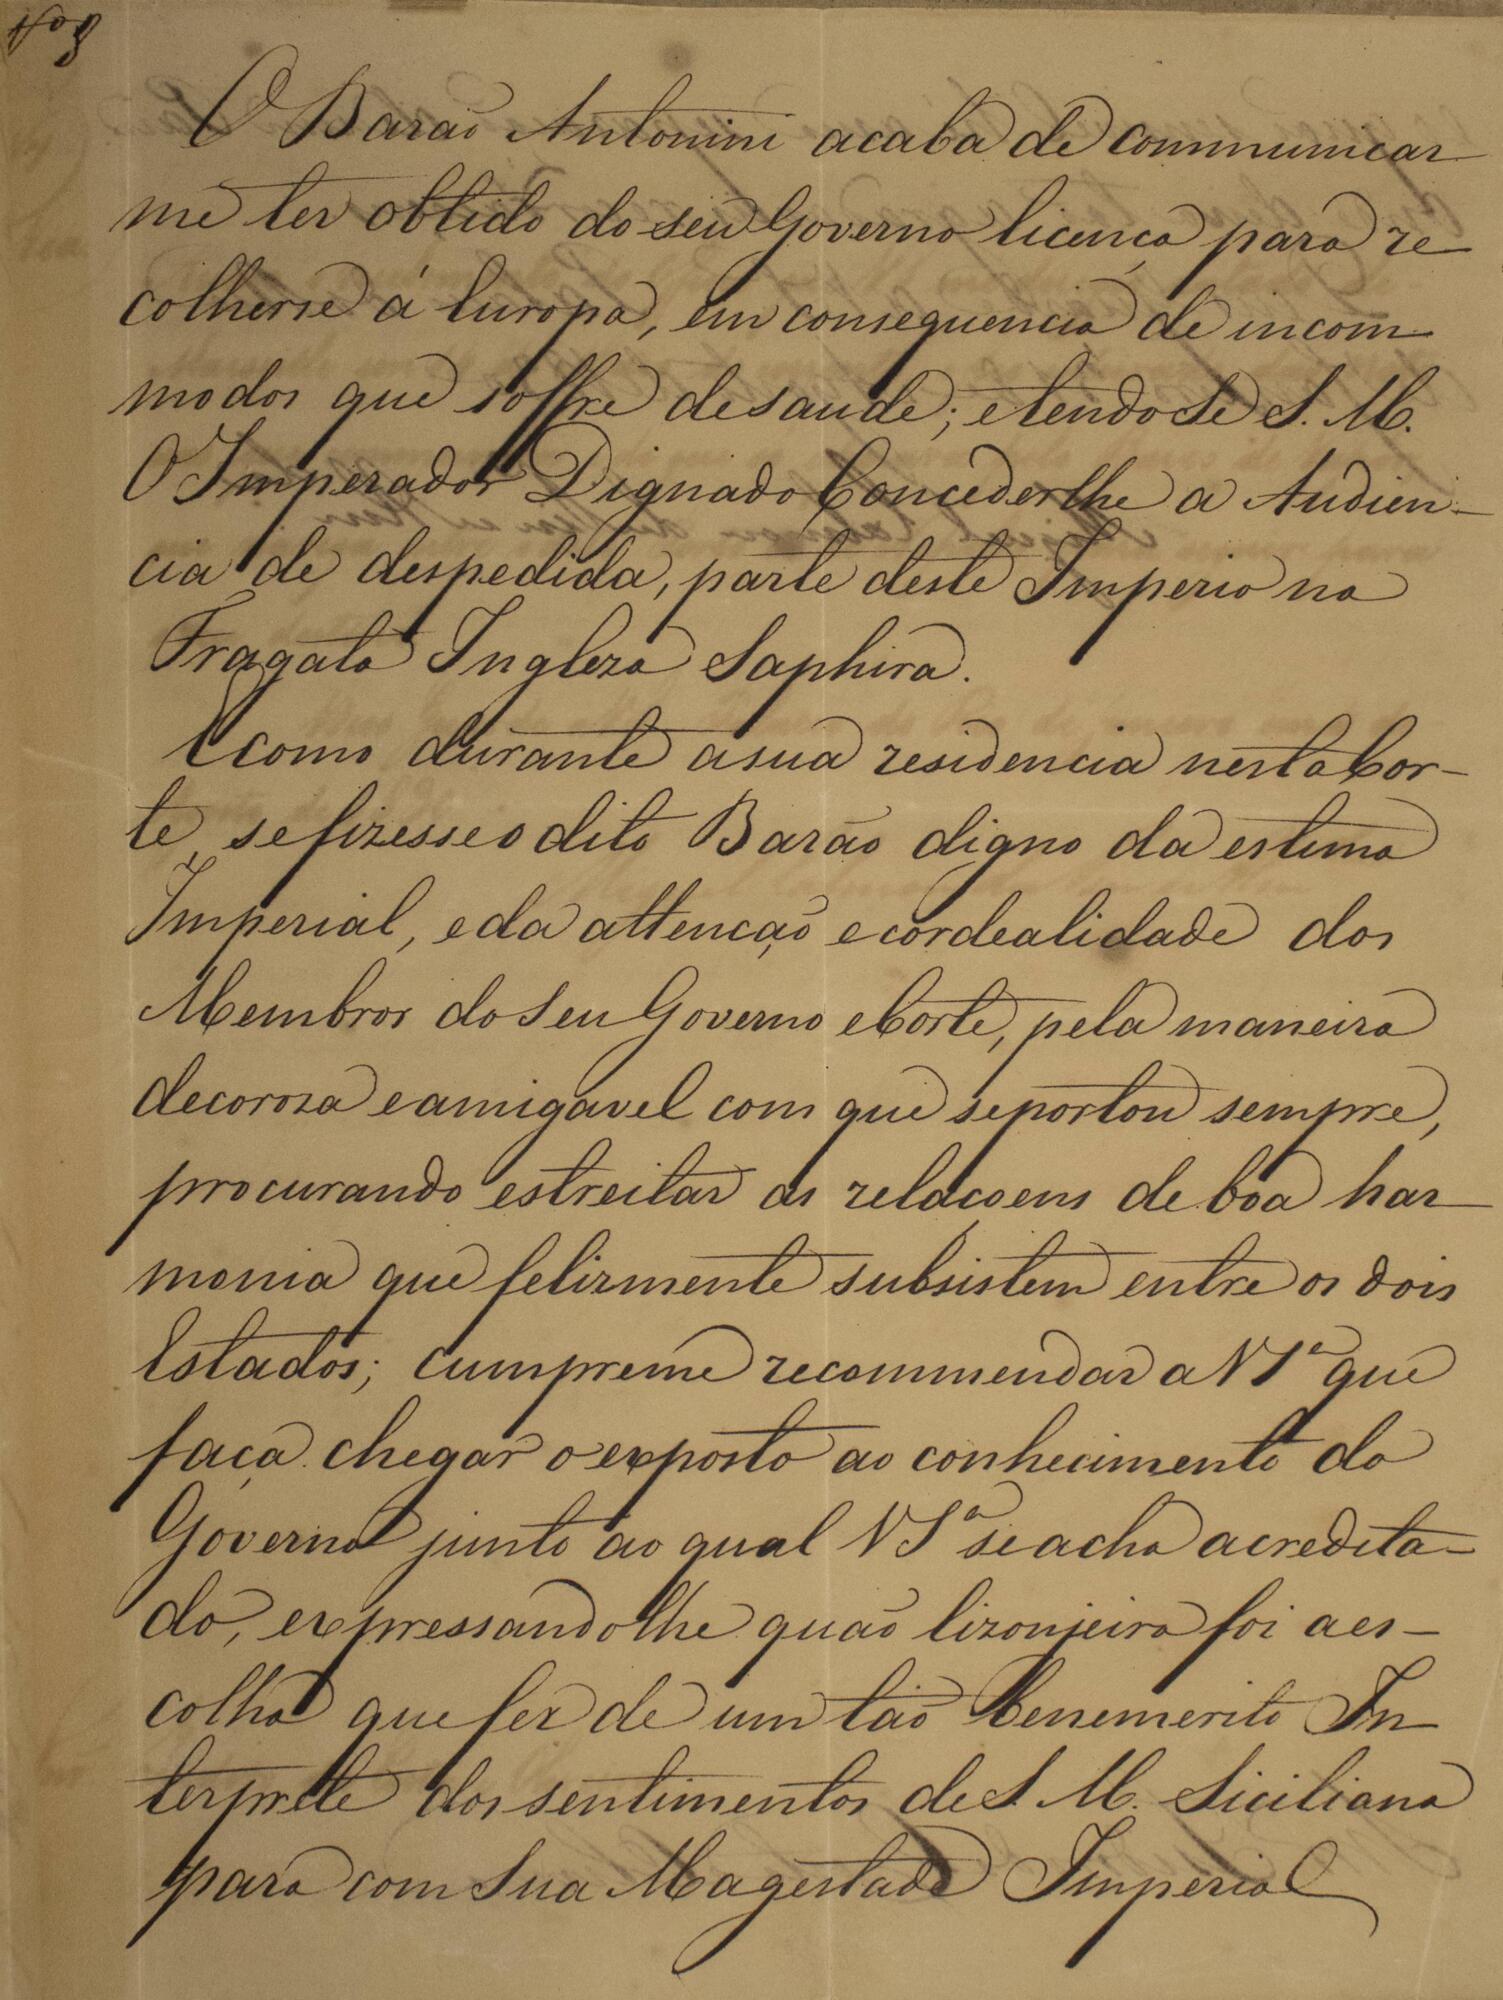 O Barão Antonini acaba de communicar
me ter obtido do seu Governo licença para re
colherse á Europa, em consequencia de incom
modos que soffre de saude; e tendo Se S. M.
O Imperador Dignado Concederlhe a Audien-
cia de despedida, parte deste Imperio na
Fragata Ingleza Saphira.
E como durante a sua residencia nesta Cor-
te, se fizesse o dito Barão digno da estima
Imperial, e da attenção e cordealidade dos
Membros do Seu Governo e Corte, pela maneira
decoroza e amigavel com que se portou sempre,
procurando estreitar as relaçoens de boa har
monia que felizmente subsistem entre os dois
Estados; cumpreme recommendar a V Sª que
faça chegar o exposto ao conhecimento do
Governo junto ao qual V Sª se acha acredita-
do, expressandolhe quão lizonjeira foi a es-
colha que fez de um tão benemerito In
terprete dos sentimentos de S. M. Siciliana
para com Sua Magestade Imperial